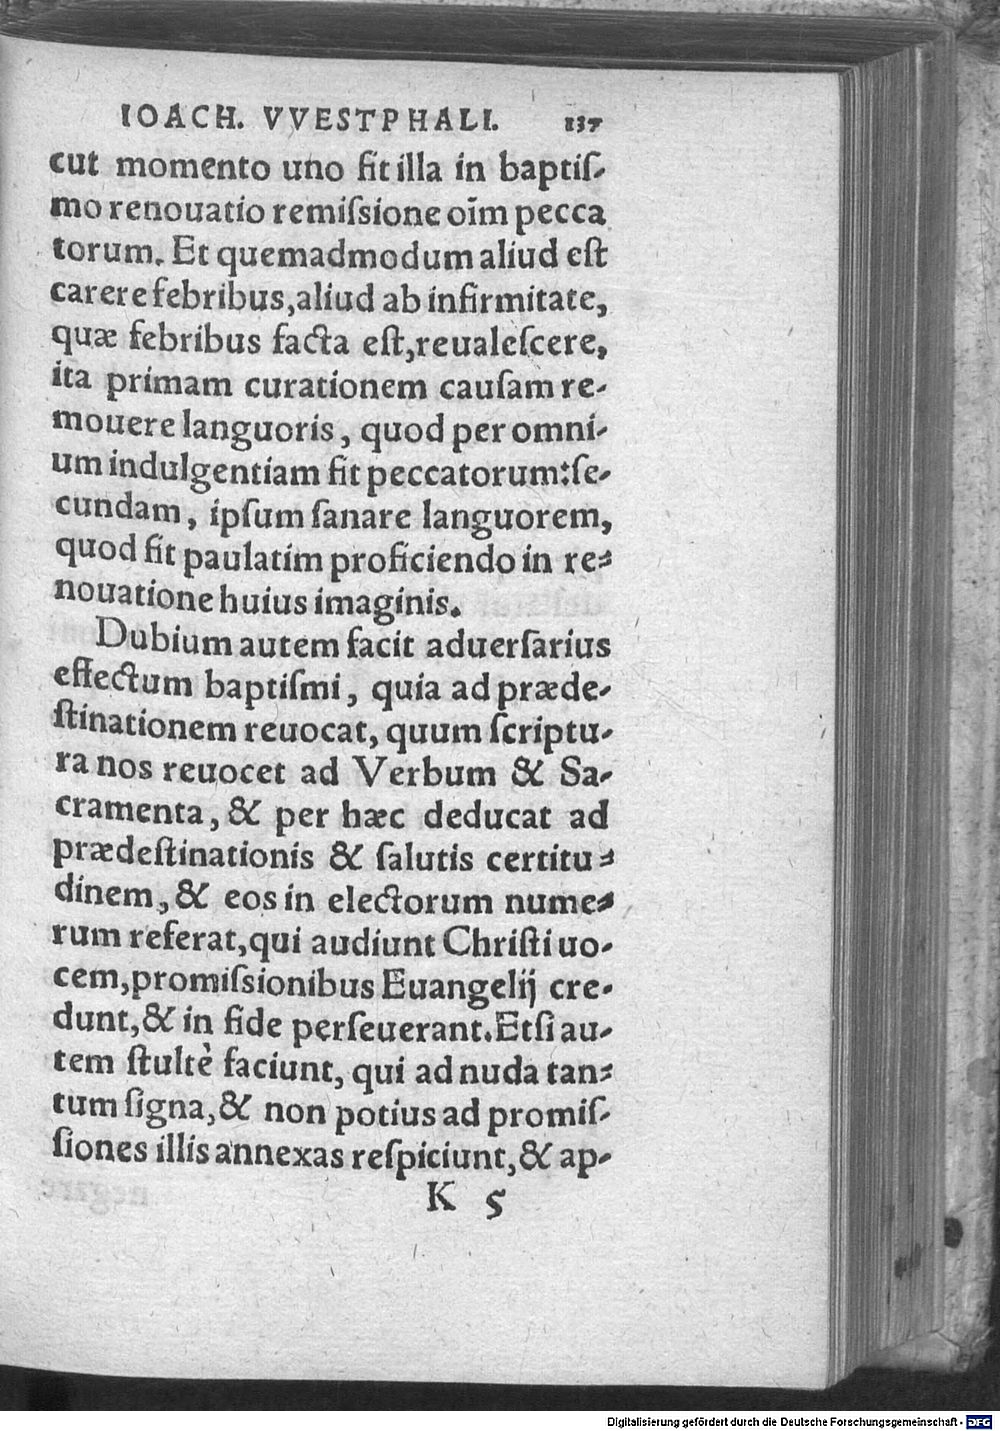 IOACH. VVESTPHALI. 137
cut momento uno fit illa in baptiſ-
mo renouatio remiſsione oīm pecca
torum. Et quemadmodum aliud eſt
carere febribus, aliud ab infirmitate,
quæ febribus facta eſt, reualeſcere,
ita primam curationem cauſam re-
mouere languoris, quod per omni-
um indulgentiam fit peccatorum: ſe-
cundam, ipſum ſanare languorem,
quod fit paulatim proficiendo in re-
nouatione huius imaginis.
Dubium autem facit aduerſarius
effectum baptiſmi, quia ad præde-
ſtinationem reuocat, quum ſcriptu-
ra nos reuocet ad Verbum & Sa-
cramenta, & per hæc deducat ad
prædeſtinationis & ſalutis certitu-
dinem, & eos in electorum nume-
rum referat, qui audiunt Chriſti uo-
cem, promiſsionibus Euangelij cre-
dunt, & in fide perſeuerant. Etſi au-
tem ſtultè faciunt, qui ad nuda tan-
tum ſigna, & non potius ad promiſ-
ſiones illis annexas reſpiciunt, & ap-
K 5
Digitalisierung gefördert durch die Deutsche Forschungsgemeinschaft - DFG